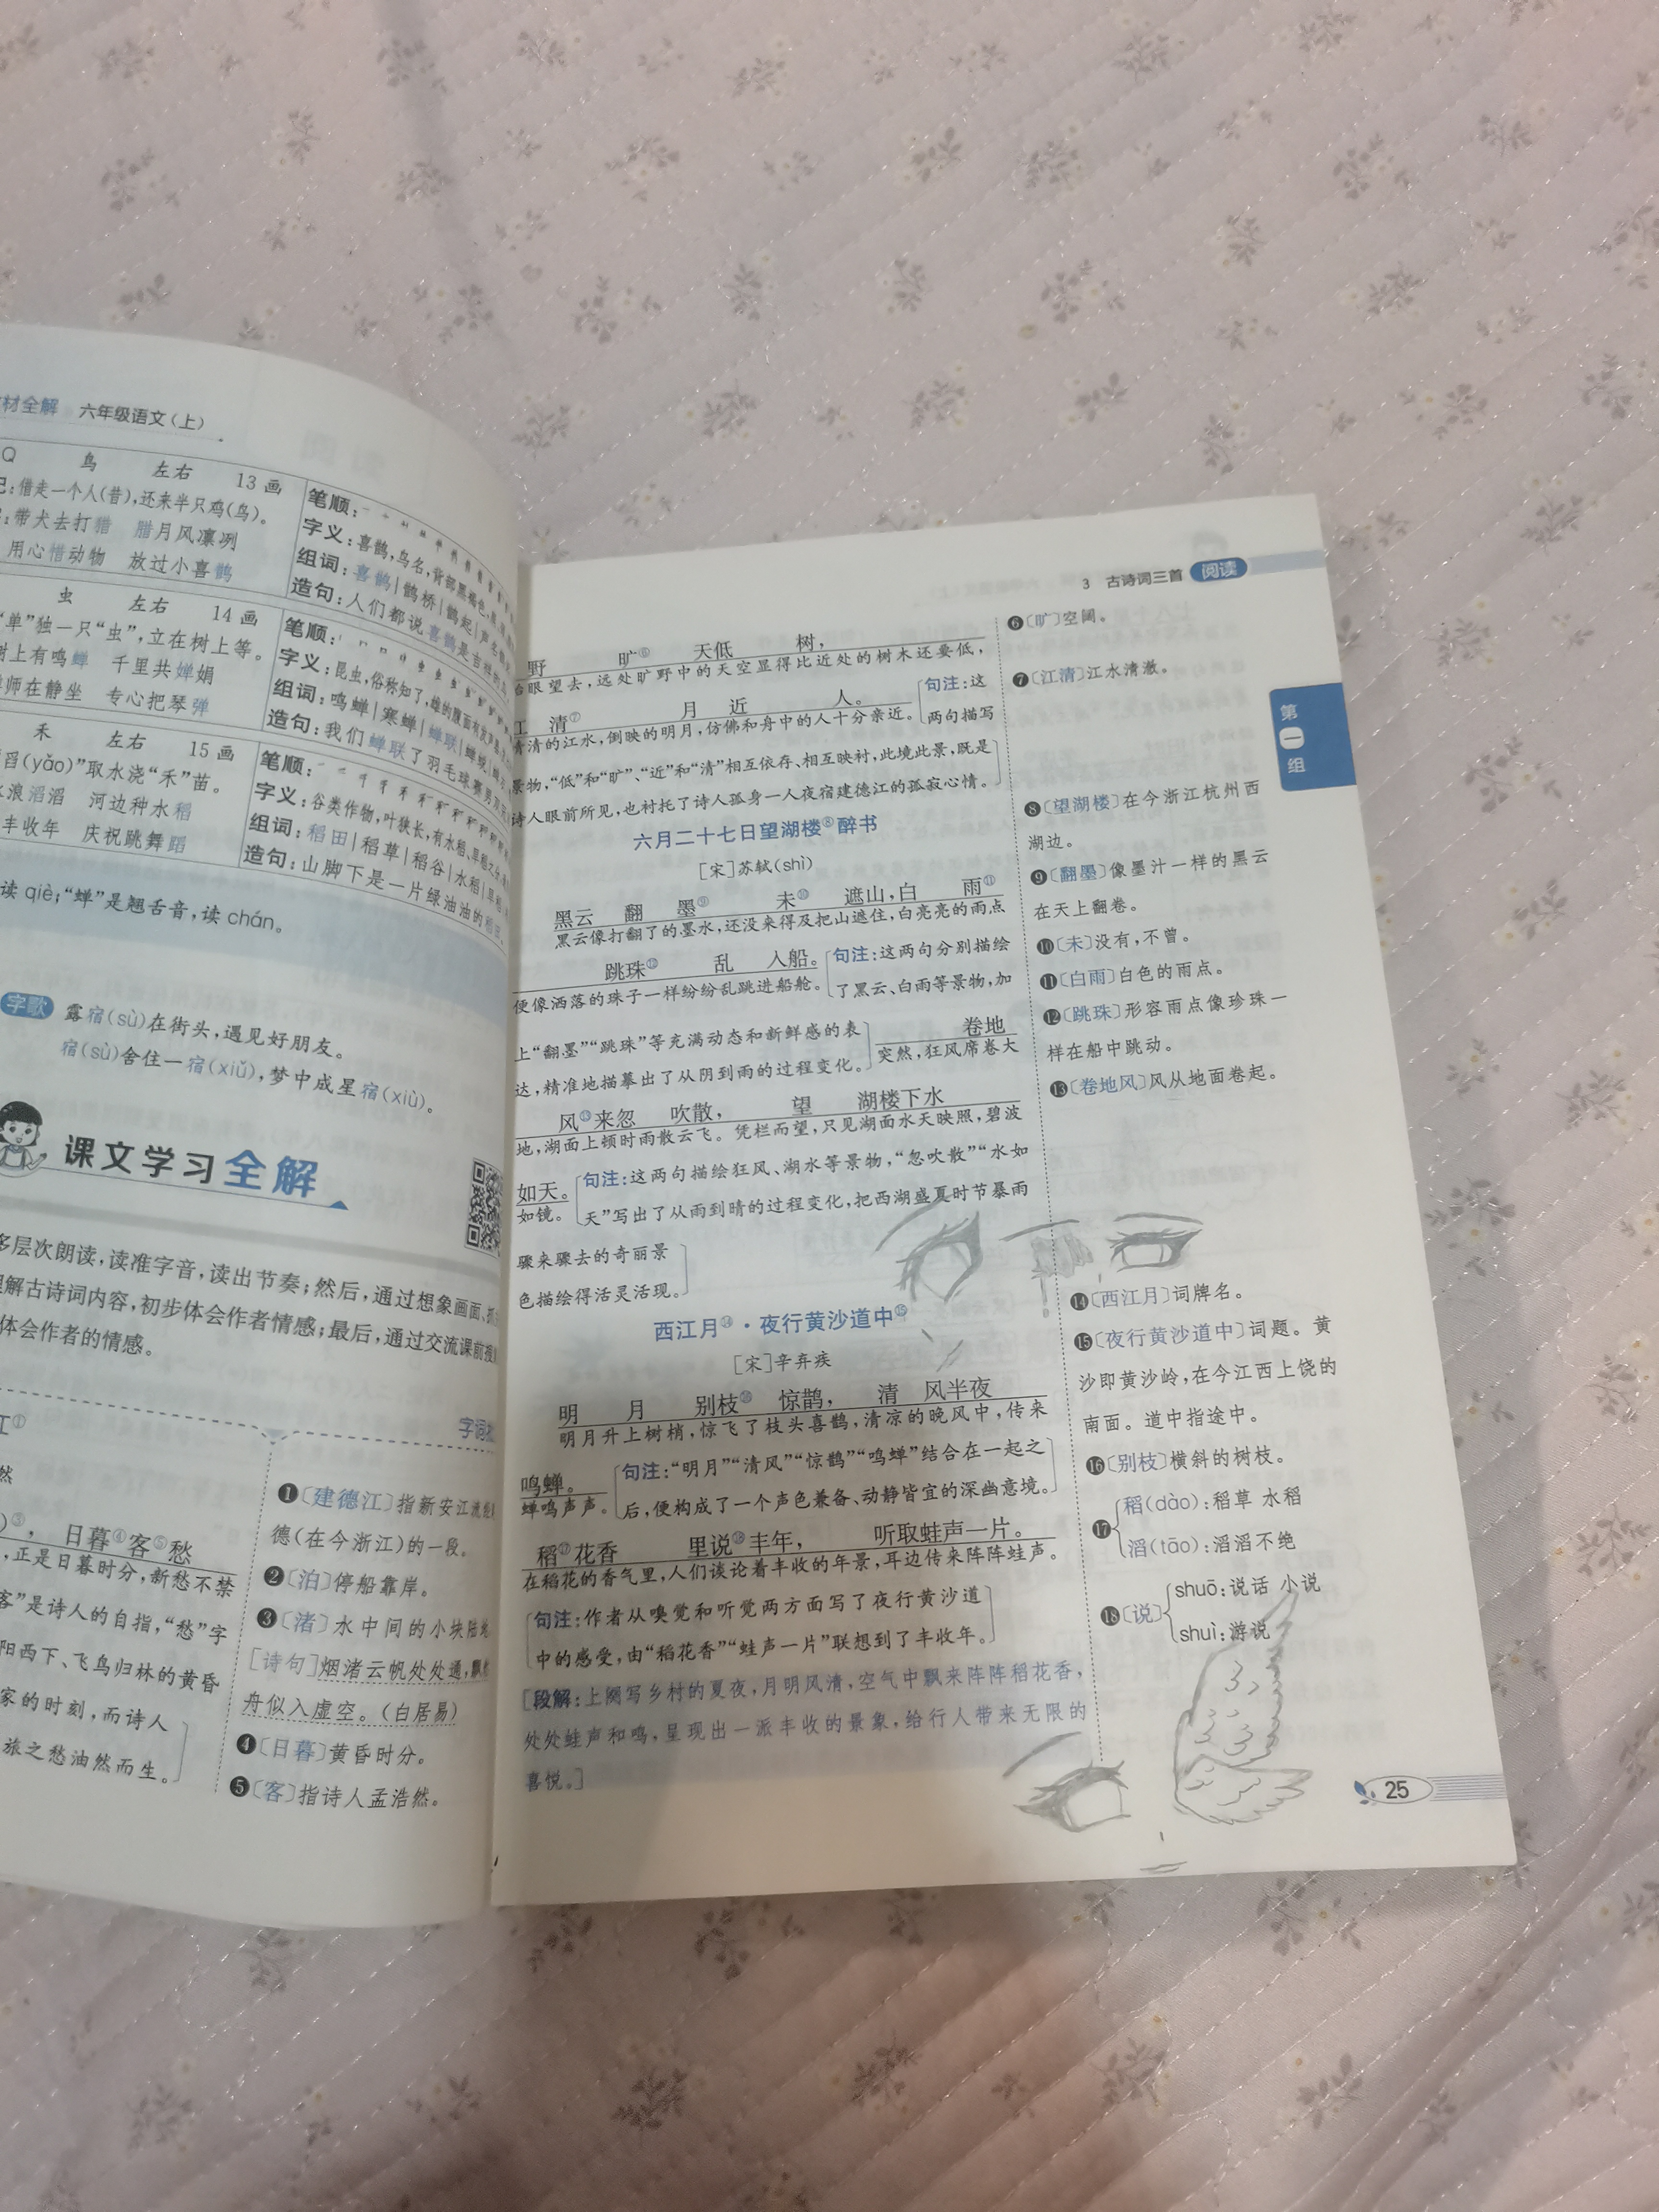 材全解 六年级语文(上)
Q 鸟 左右 13画
:借走一个人(昔),还来半只鸡(鸟)。
:带犬去打猎 腊月风凛冽
用心惜动物 放过小喜鹊
笔顺:
字义:喜鹊,鸟名,背部黑褐色,
组词:喜鹊|鹊桥|鹊起|声名鹊
造句:人们都说喜鹊是吉祥
虫 左右 14画
“单”独一只“虫”,立在树上等。
树上有鸣蝉 千里共婵娟
师在静坐 专心把琴弹
笔顺:
字义:昆虫,俗称知了,雄的腹面有发声器
组词:鸣蝉|寒蝉|蝉联|蝉蜕
造句:我们蝉联了羽毛球赛男
禾 左右 15画
舀(yǎo)”取水浇“禾”苗。
水浪滔滔 河边种水稻
丰收年 庆祝跳舞蹈
笔顺:
字义:谷类作物,叶狭长,有水稻、旱稻之分
组词:稻田|稻草|稻谷|水稻|旱稻
造句:山脚下是一片绿油油的稻田。
读qiè;“蝉”是翘舌音,读chán。
字歌 露宿(sù)在街头,遇见好朋友。
宿(sù)舍住一宿(xiǔ),梦中成星宿(xiù)。
课文学习全解
多层次朗读,读准字音,读出节奏;然后,通过想象画面、抓
理解古诗词内容,初步体会作者情感;最后,通过交流课前搜
体会作者的情感。
江①
字词
然
)③, 日暮④客⑤愁
,正是日暮时分,新愁不禁
客”是诗人的自指,“愁”字
阳西下、飞鸟归林的黄昏
家的时刻,而诗人
旅之愁油然而生。
❶〔建德江〕指新安江流经
德(在今浙江)的一段。
❷〔泊〕停船靠岸。
❸〔渚〕水中间的小块陆地
[诗句]烟渚云帆处处通,飘然
舟似入虚空。(白居易)
❹〔日暮〕黄昏时分。
❺〔客〕指诗人孟浩然。
3 古诗词三首 阅读
野 旷⑥ 天低 树,
眼望去,远处旷野中的天空显得比近处的树木还要低,
江 清⑦ 月 近 人。
清清的江水,倒映的明月,仿佛和舟中的人十分亲近。
[句注:这
两句描写
景物,“低”和“旷”、“近”和“清”相互依存、相互映衬,此境此景,既是
诗人眼前所见,也衬托了诗人孤身一人夜宿建德江的孤寂心情。]
六月二十七日望湖楼⑧醉书
[宋]苏轼(shì)
黑云 翻 墨⑨ 未⑩ 遮山,白 雨⑪
黑云像打翻了的墨水,还没来得及把山遮住,白亮亮的雨点
跳珠⑫ 乱 入船。
便像洒落的珠子一样纷纷乱跳进船舱。
[句注:这两句分别描绘
了黑云、白雨等景物,加
上“翻墨”“跳珠”等充满动态和新鲜感的表
达,精准地描摹出了从阴到雨的过程变化。]
卷地
突然,狂风席卷大
风⑬来忽 吹散, 望 湖楼下水
地,湖面上顿时雨散云飞。凭栏而望,只见湖面水天映照,碧波
如天。
如镜。
[句注:这两句描绘狂风、湖水等景物,“忽吹散”“水如
天”写出了从雨到晴的过程变化,把西湖盛夏时节暴雨
骤来骤去的奇丽景
色描绘得活灵活现。]
西江月⑭·夜行黄沙道中⑮
[宋]辛弃疾
明 月 别枝⑯ 惊鹊, 清 风半夜
明月升上树梢,惊飞了枝头喜鹊,清凉的晚风中,传来
鸣蝉。
蝉鸣声声。
[句注:“明月”“清风”“惊鹊”“鸣蝉”结合在一起之
后,便构成了一个声色兼备、动静皆宜的深幽意境。]
稻⑰花香 里说⑱丰年, 听取蛙声一片。
在稻花的香气里,人们谈论着丰收的年景,耳边传来阵阵蛙声。
[句注:作者从嗅觉和听觉两方面写了夜行黄沙道
中的感受,由“稻花香”“蛙声一片”联想到了丰收年。]
[段解:上阕写乡村的夏夜,月明风清,空气中飘来阵阵稻花香,
处处蛙声和鸣,呈现出一派丰收的景象,给行人带来无限的
喜悦。]
❻〔旷〕空阔。
❼〔江清〕江水清澈。
❽〔望湖楼〕在今浙江杭州西
湖边。
❾〔翻墨〕像墨汁一样的黑云
在天上翻卷。
❿〔未〕没有,不曾。
⓫〔白雨〕白色的雨点。
⓬〔跳珠〕形容雨点像珍珠一
样在船中跳动。
⓭〔卷地风〕风从地面卷起。
⓮〔西江月〕词牌名。
⓯〔夜行黄沙道中〕词题。黄
沙即黄沙岭,在今江西上饶的
南面。道中指途中。
⓰〔别枝〕横斜的树枝。
⓱ 稻(dào):稻草 水稻
滔(tāo):滔滔不绝
⓲〔说〕 shuō:说话 小说
shuì:游说
第一组
25